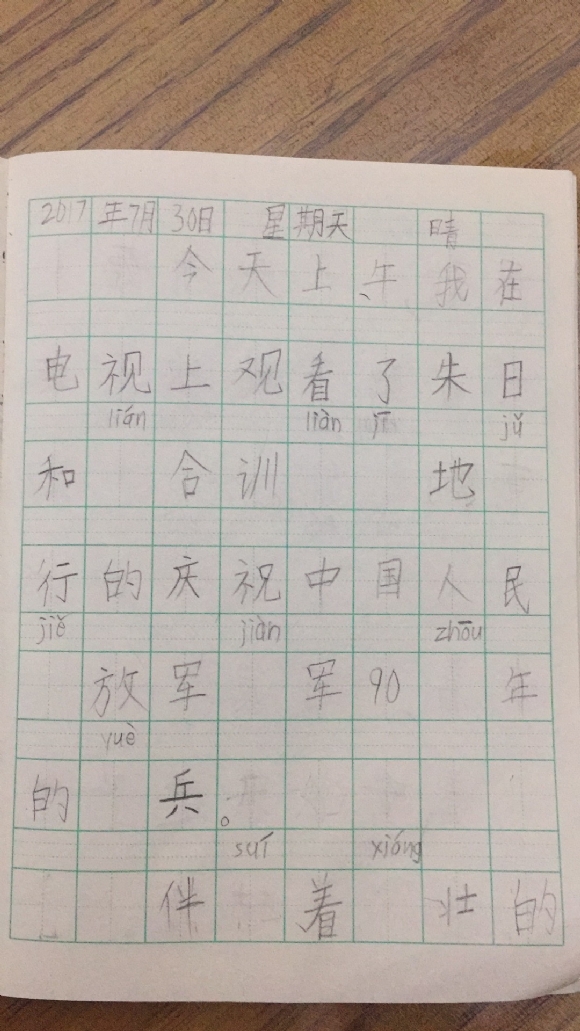 2017年7月30日 星期天 晴
今天上午、我在
电视上观看了朱日
lián liàn jī jǔ
和 合训 地
行的庆祝中国人民
jiě jiàn zhōu
放军 军90 年
yuè
的 兵。
suí xióng
伴 着 壮的